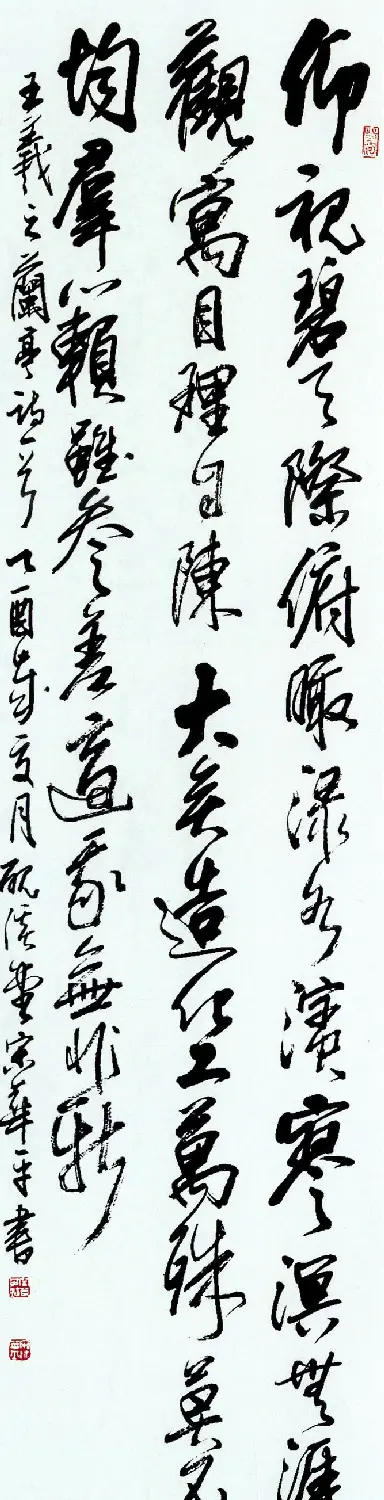 仰視碧天際俯瞰渌水濱寥溟無涯
觀寓目理自陳大矣造化工萬殊莫不
均羣籟雖參差適我無非新
王羲之蘭亭詩一首乙酉歲夏月硯溪堂宋華平書